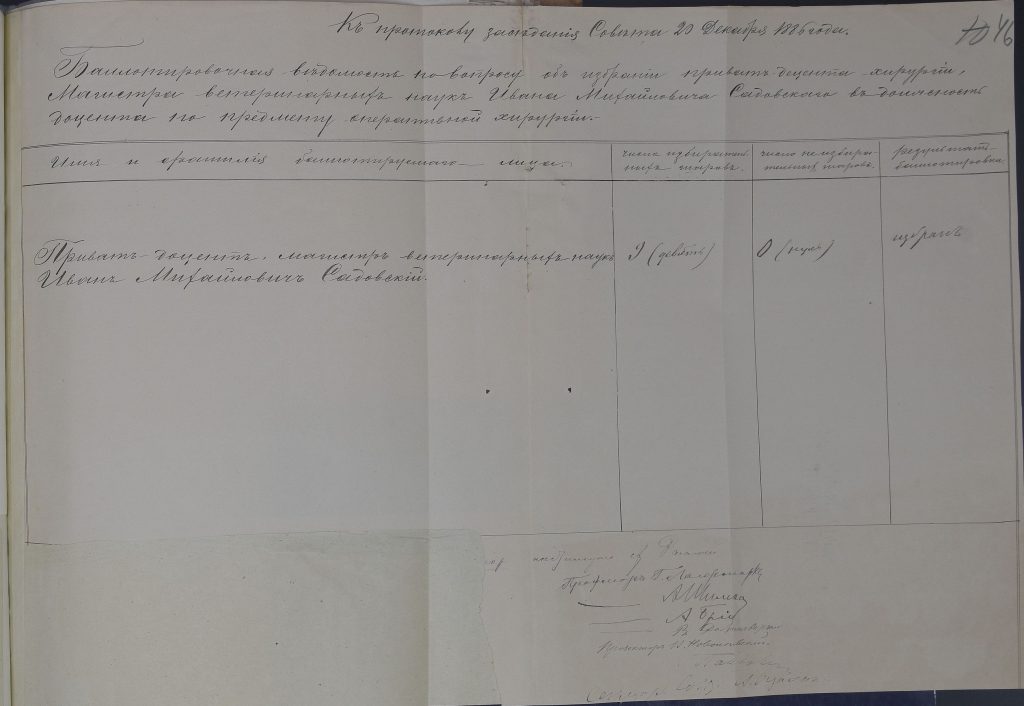 Къ протоколу засѣданія Совѣта 20 Декабря 1886 года.
46
Баллотировочная вѣдомость по вопросу объ избраніи приватъ-доцента хирургіи,
Магистра ветеринарныхъ наукъ Ивана Михайловича Садовскаго въ должность
доцента по предмету оперативной хирургіи.-
Имя и фамилія баллотируемаго лица.
число избиратель-
ныхъ шаровъ.
число неизбира-
тельныхъ шаровъ.
результатъ
баллотировки
Приватъ-доцентъ, магистръ ветеринарныхъ наукъ
Иванъ Михайловичъ Садовскій.
9 (девять)
0 (нуль)
избранъ
Профессоръ
А
А
В
Прозекторъ